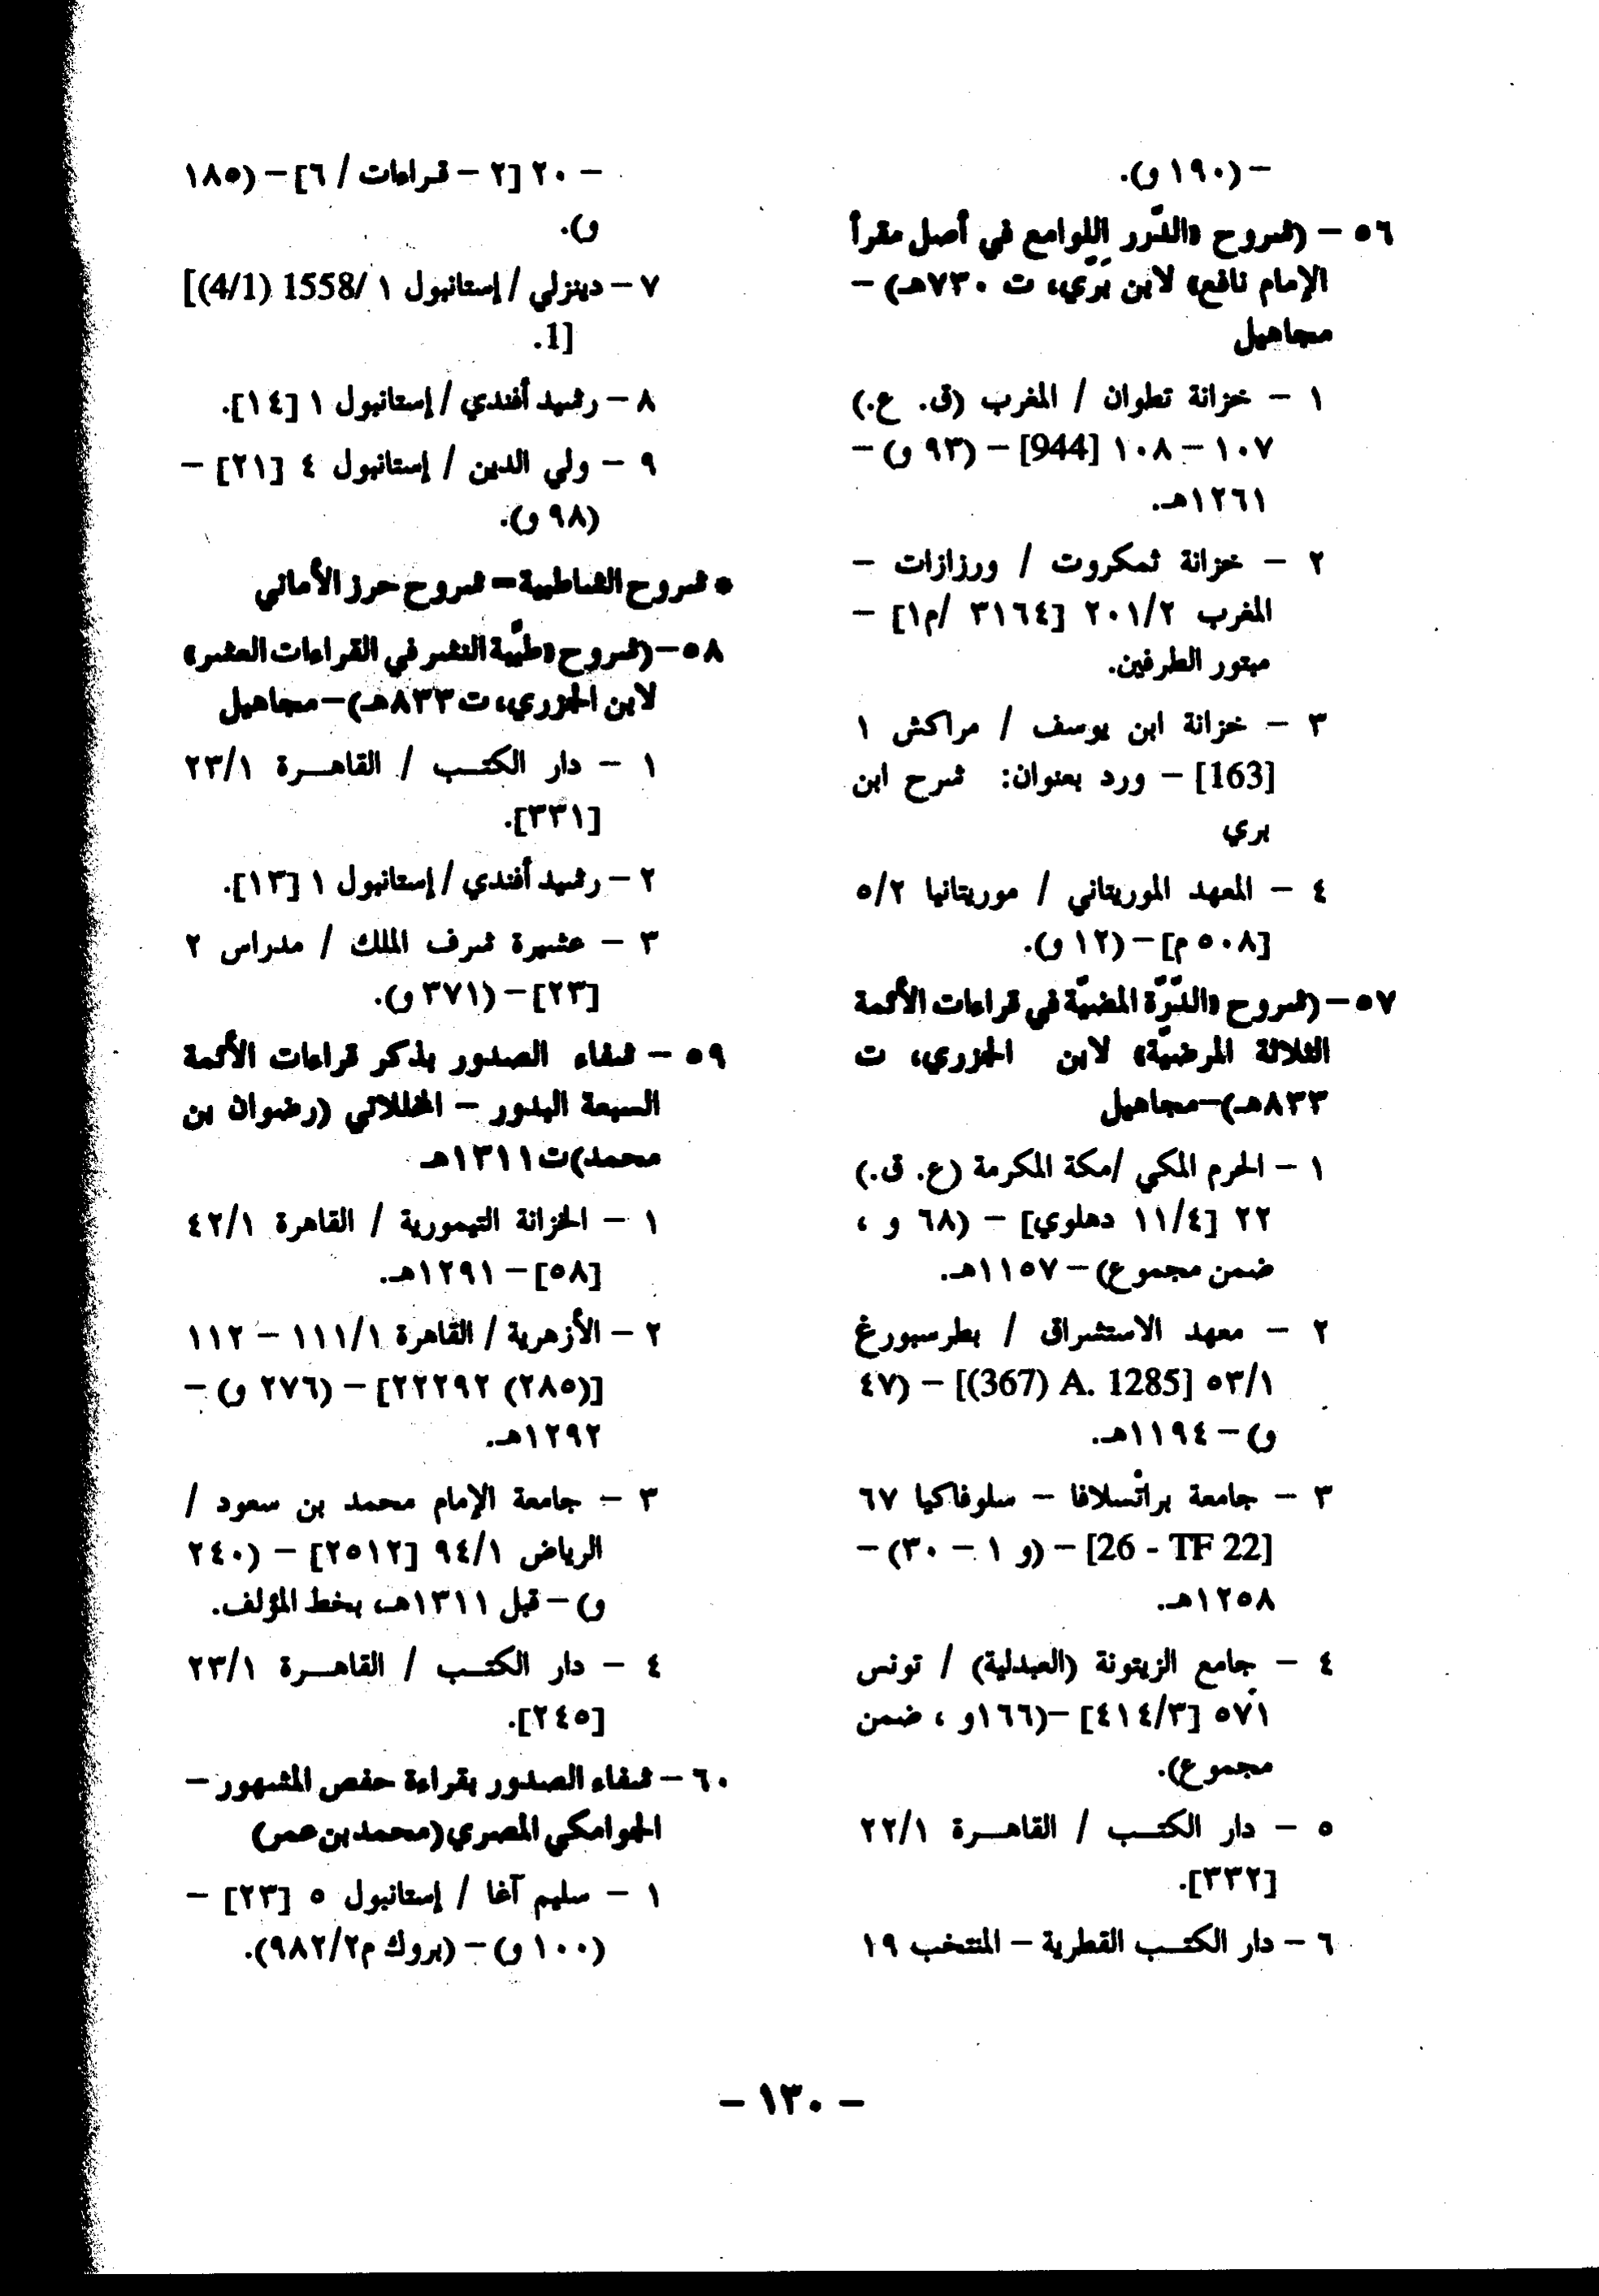 – (١٩٠ و).
٥٦ – (شروح «الدّرر اللوامع في أصل مقرأ
الإمام نافع» لابن بَرّي، ت ٧٣٠هـ) –
مجاهيل
١ – خزانة تطوان / المغرب (ق. ع.)
١٠٧ – ١٠٨ [944] – (٩٣ و) –
١٢٦١هـ.
٢ – خزانة تمكروت / ورزازات –
المغرب ٢٠١/٢ [٣١٦٤ /م١] –
مبتور الطرفين.
٣ – خزانة ابن يوسف / مراكش ١
[163] – ورد بعنوان: شرح ابن
بري
٤ – المعهد الموريتاني / موريتانيا ٥/٢
[٥٠٨ م] – (١٢ و).
٥٧ – (شروح «الدّرّة المضيّة في قراءات الأئمة
الثلاثة المرضيّة» لابن الجزري، ت
٨٣٣هـ) – مجاهيل
١ – الحرم المكي /مكة المكرمة (ع. ق.)
٢٢ [١١/٤ دهلوي] – (٦٨ و ،
ضمن مجموع) – ١١٥٧هـ.
٢ – معهد الاستشراق / بطرسبورغ
٥٣/١ [(367) A. 1285] – (٤٧
و) – ١١٩٤هـ.
٣ – جامعة براتسلافا – سلوفاكيا ٦٧
[26 - TF 22] – (و ١ – ٣٠) –
١٢٥٨هـ.
٤ – جامع الزيتونة (العبدلية) / تونس
٥٧١ [٤١٤/٣] –(١٦٦و ، ضمن
مجموع).
٥ – دار الكتـب / القاهـرة ٢٢/١
[٣٣٢].
٦ – دار الكتـب القطرية – المنتخب ١٩
– ٢٠ [٢ – قراءات / ٦] – (١٨٥
و).
٧ – دينزلي / إستانبول ١ /1558 (4/1)]
1].
٨ – رشيد أفندي / إستانبول ١ [١٤].
٩ – ولي الدين / إستانبول ٤ [٢١] –
(٩٨ و).
* شروح الشاطبية = شروح حرز الأماني
٥٨ – (شروح «طيّبة النشر في القراءات العشر»
لابن الجزري، ت ٨٣٣هـ) – مجاهيل
١ – دار الكتـب / القاهـرة ٢٣/١
[٣٣١].
٢ – رشيد أفندي / إستانبول ١ [١٣].
٣ – عشيرة شرف الملك / مدراس ٢
[٢٣] – (٣٧١ و).
٥٩ – شفاء الصدور بذكر قراءات الأئمة
السبعة البدور – المخللاتي (رضوان بن
محمد) ت ١٣١١هـ
١ – الخزانة التيمورية / القاهرة ٤٢/١
[٥٨] – ١٢٩١هـ.
٢ – الأزهرية / القاهرة ١١١/١ – ١١٢
[(٢٨٥) ٢٢٢٩٢] – (٢٧٦ و) –
١٢٩٢هـ.
٣ – جامعة الإمام محمد بن سعود /
الرياض ٩٤/١ [٢٥١٢] – (٢٤٠
و) – قبل ١٣١١هـ، بخط المؤلف.
٤ – دار الكتـب / القاهـرة ٢٣/١
[٢٤٥].
٦٠ – شفاء الصدور بقراءة حفص المشهور –
الجوامكي المصري (محمد بن عمر)
١ – سليم آغا / إستانبول ٥ [٢٣] –
(١٠٠ و) – (بروك م٩٨٢/٢).
– ١٣٠ –